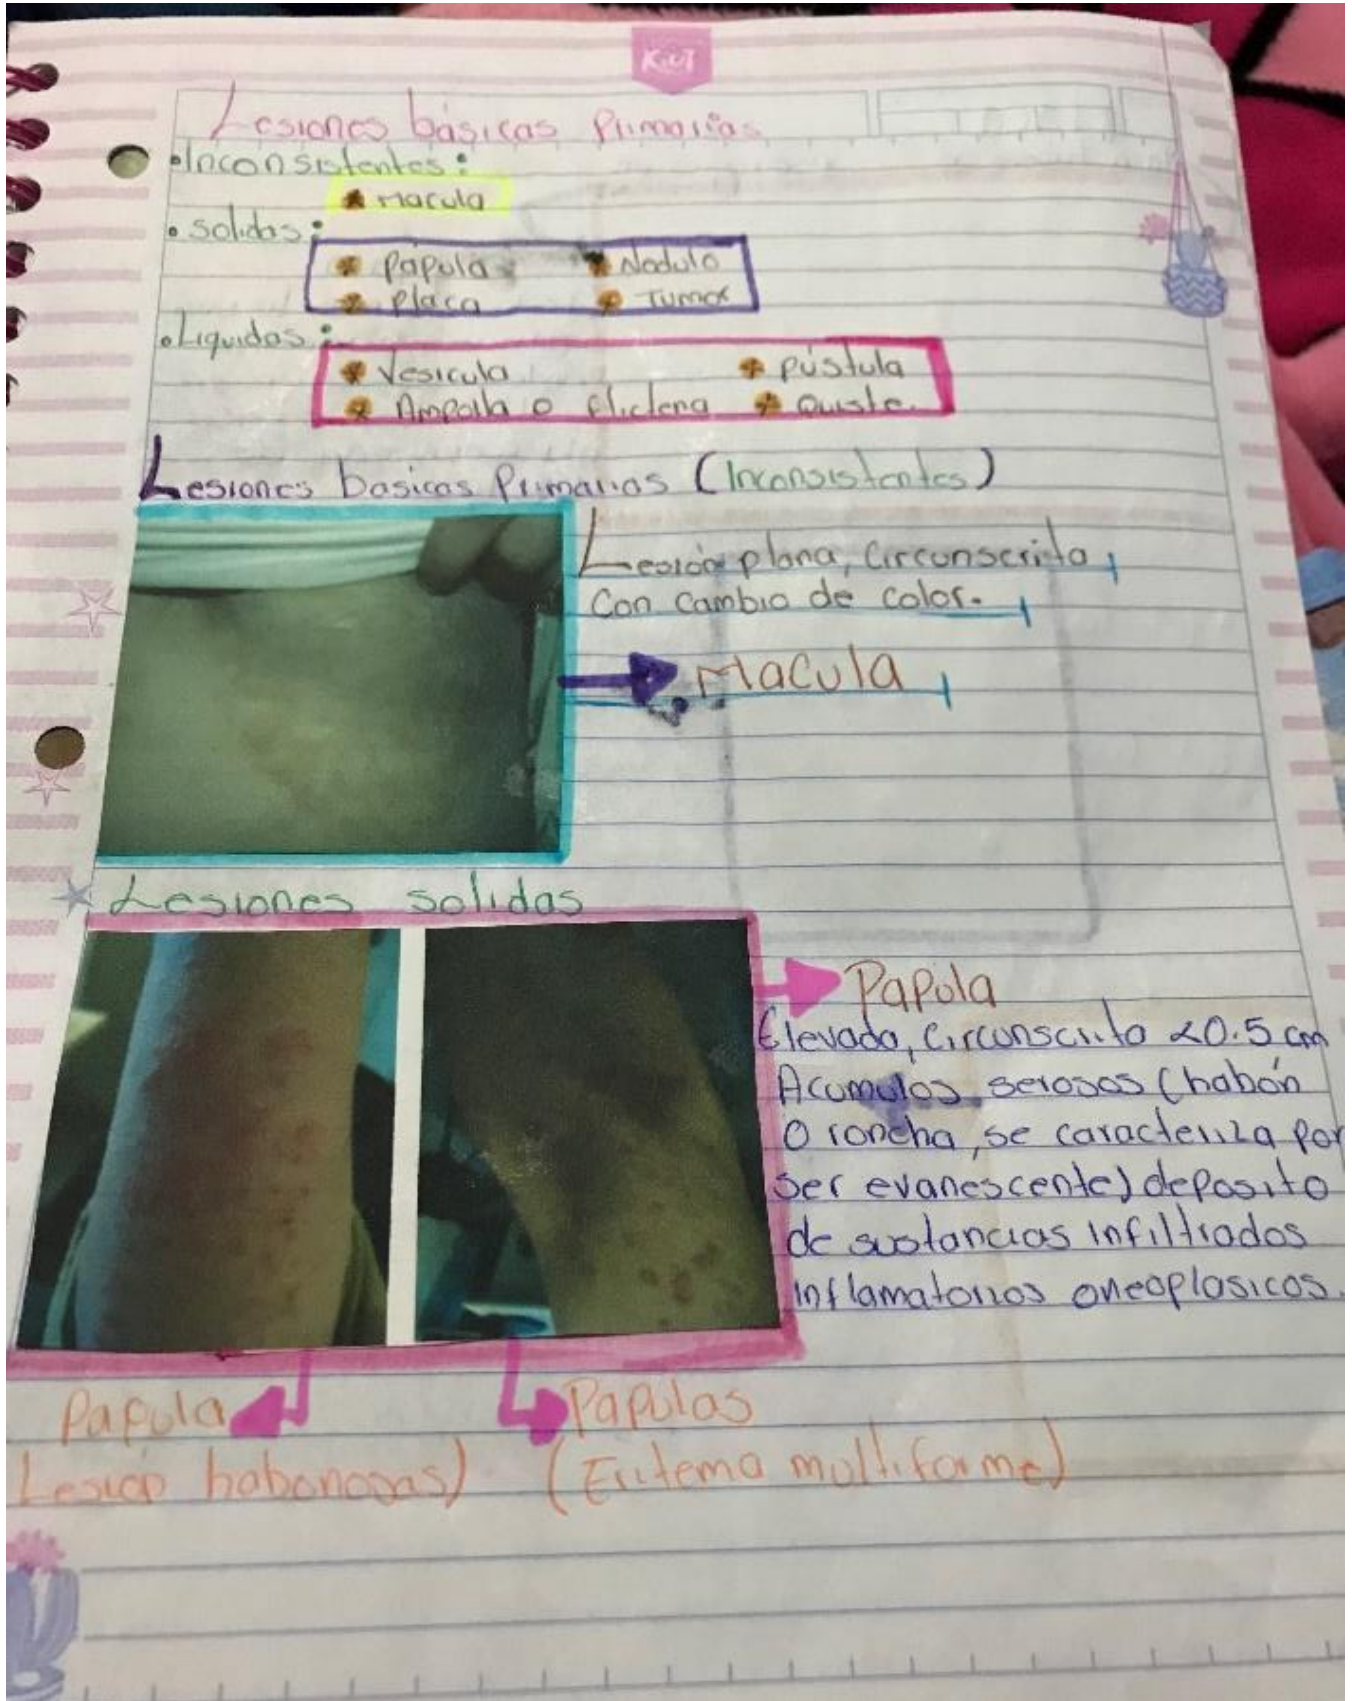 KiUT
Lesiones básicas Primarias
•Inconsistentes:
Macula
•Solidas:
Papula Nodulo
Placa Tumor
•Liquidas:
Vesicula Pústula
Ampolla o flictena Quiste.
Lesiones basicas Primarias (Inconsistentes)
Lesión plana, Circunscrita
Con Cambio de color.
Macula
Lesiones solidas
Papula
Elevada, Circunscrita <0.5 cm
Acumulos serosos (habón
O roncha, se caracteriza por
Ser evanescente) deposito
de sustancias infiltrados
inflamatorios oneoplasicos.
Papula Papulas
Lesion habonosas) (Eritema multiforme)